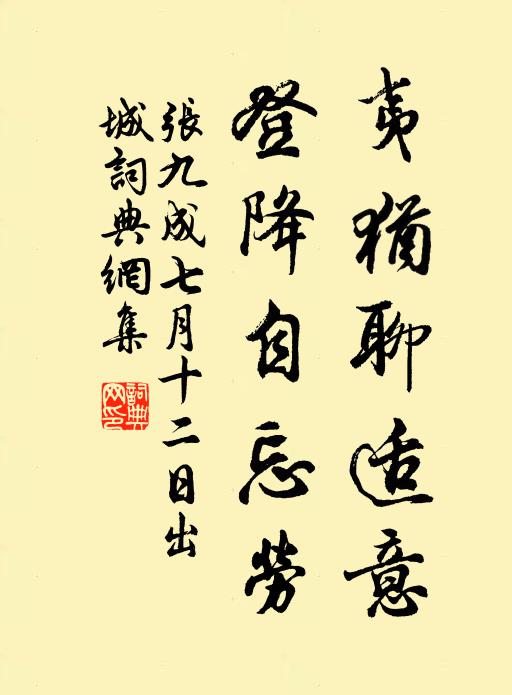 夷猶聊适意
登降自忘勞
張九成七月十二日出
城詞典網集
詞典
网印